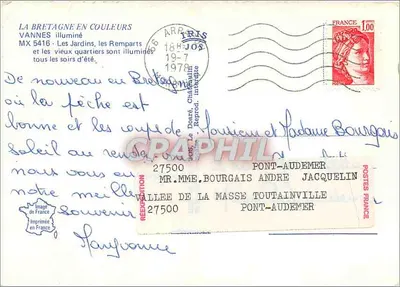 LA BRETAGNE EN COULEURS
VANNES illuminé
MX 5416 - Les Jardins, les Remparts
et les vieux quartiers sont illuminés
tous les soirs d'été.
IRIS
JOS
56 ARR
18H
19-7
1978
Reprod. interdite
FRANCE
1,00
De nouveau en Bretagne
où la pêche est
bonne et les coups de
soleil au rendez
nous vous en
notre meilleur
Souvenir
Maryvonne
Monsieur et Madame Bourgais
CPAPHIL
27500 PONT-AUDEMER
MR.MME.BOURGAIS ANDRE JACQUELIN
VALLEE DE LA MASSE TOUTAINVILLE
27500 PONT-AUDEMER
RÉEXPÉDITION
POSTES FRANCE
Image
de France
Imprimée
en France